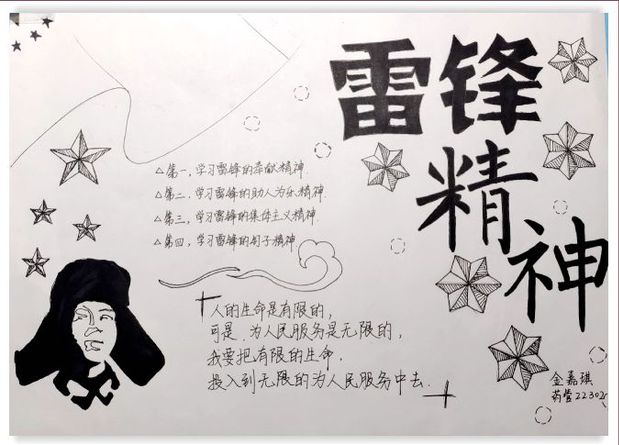 雷锋
精神
△第一，学习雷锋的奉献精神.
△第二.学习雷锋的助人为乐精神.
△第三，学习雷锋的集体主义精神.
△第四，学习雷锋的钉子精神
人的生命是有限的，
可是.为人民服务是无限的，
我要把有限的生命.
投入到无限的为人民服务中去.
金嘉琪
药管22302